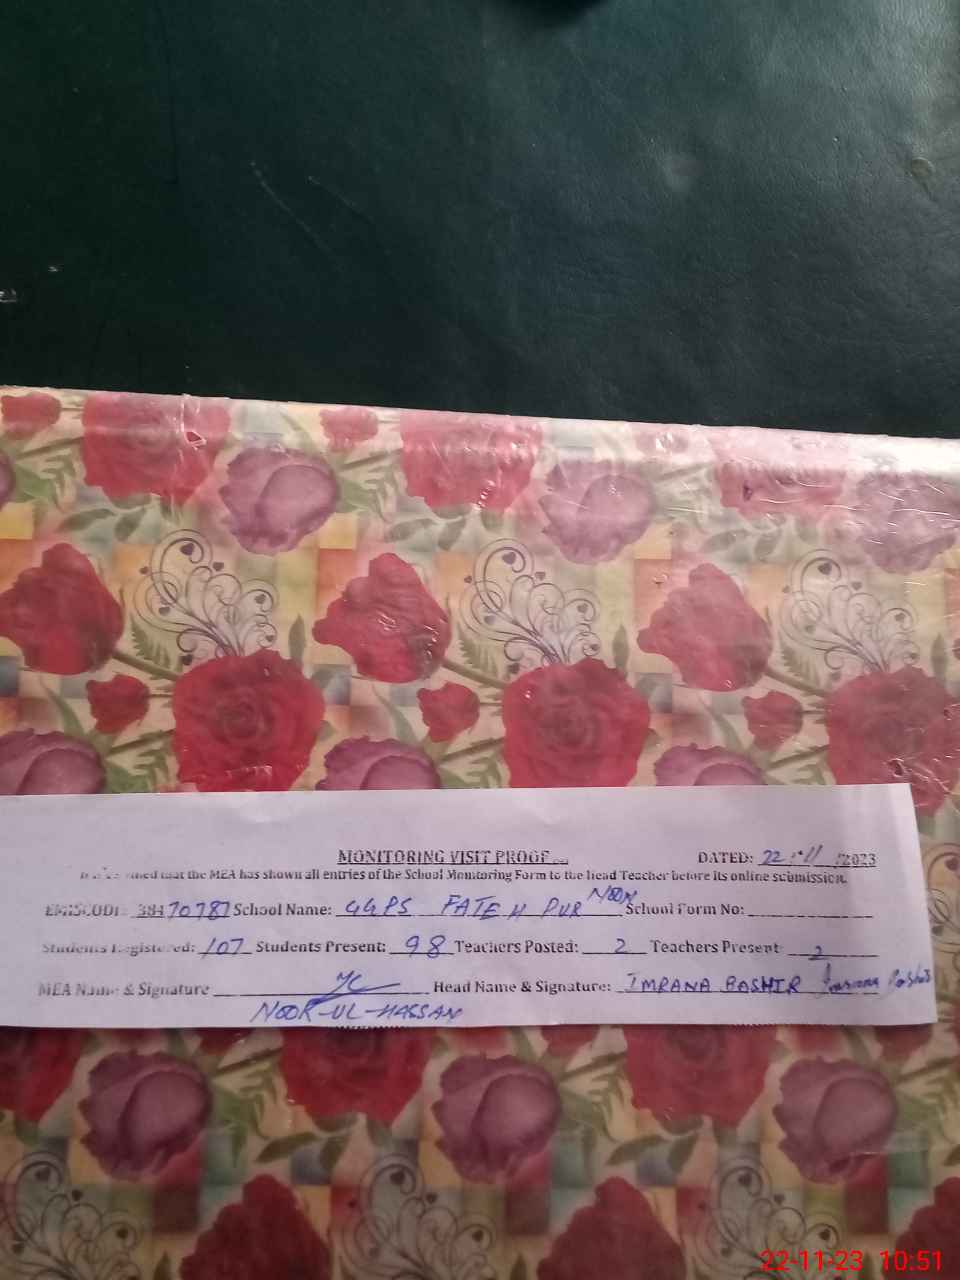 MONITORING VISIT PROOF DATED: 22/11/2023
that the MEA has shown all entries of the School Monitoring Form to the Head Teacher before its online submission.
EMISCODE: 38470787 School Name: GGPS FATEH PUR NOON School Form No:
Students Registered: 107 Students Present: 98 Teachers Posted: 2 Teachers Present: 2
MEA Name & Signature Head Name & Signature: IMRANA BASHIR Imrana Bashir
NOOR-UL-HASSAN
22-11-23 10:51